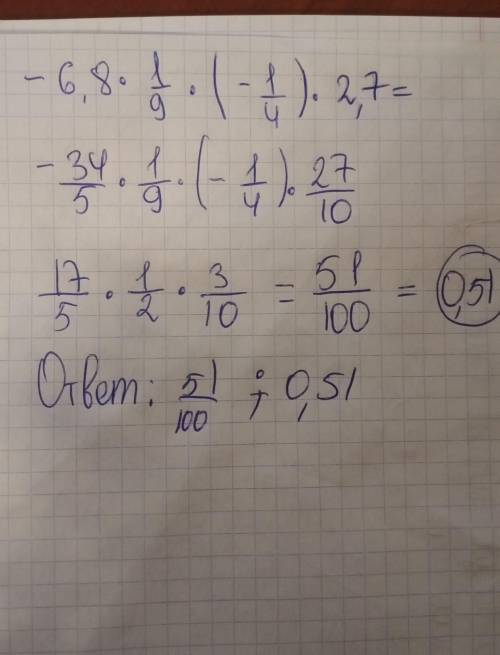 - 6,8 · 1/9 · (- 1/4) · 2,7 =
- 34/5 · 1/9 · (- 1/4) · 27/10
17/5 · 1/2 · 3/10 = 51/100 = 0,51
Ответ: 51/100 ; 0,51